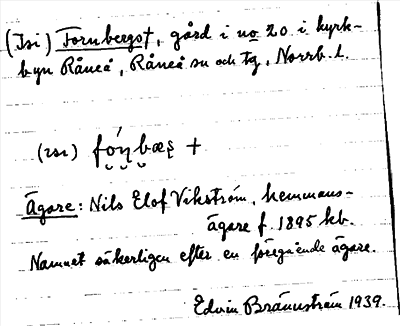 (Isi) Fornbergs†, gård i no 20 i kyrk-
byn Råneå, Råneå sn och tg, Norrb. l.
(ısı) fóŋbæʂ +
Ägare: Nils Elof Vikström, hemmans-
ägare f. 1895 kb.
Namnet säkerligen efter en föregående ägare.
Edvin Brännström 1939.